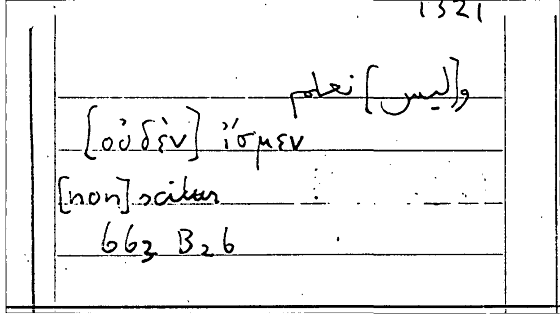 1321
و[ليس] نعلم
[οὐδὲν] ἴσμεν
[non] scitur
663 B26